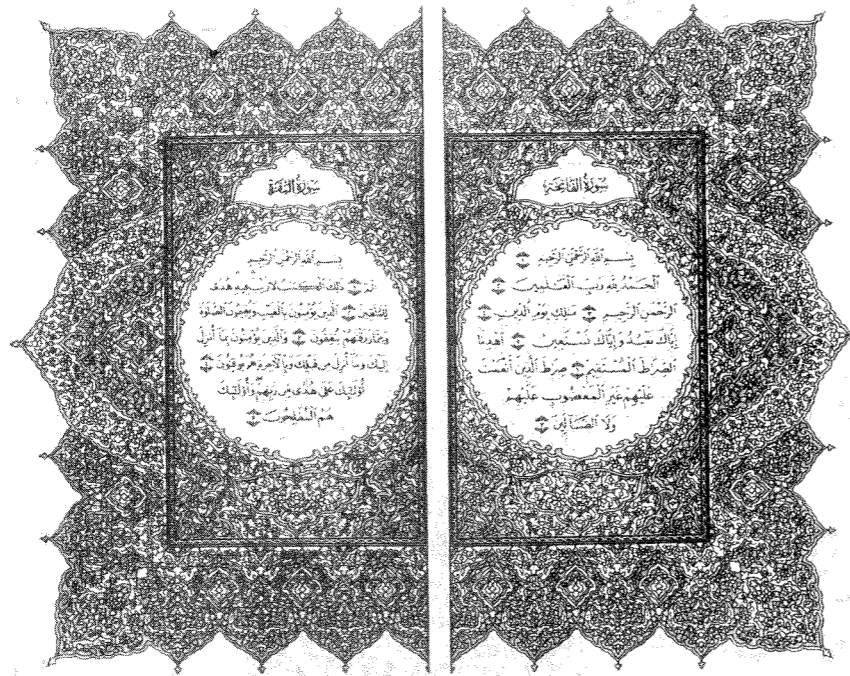 سُورَةُ الْفَاتِحَةِ
بِسْمِ اللَّهِ الرَّحْمَٰنِ الرَّحِيمِ
الْحَمْدُ لِلَّهِ رَبِّ الْعَالَمِينَ
الرَّحْمَٰنِ الرَّحِيمِ مَالِكِ يَوْمِ الدِّينِ
إِيَّاكَ نَعْبُدُ وَإِيَّاكَ نَسْتَعِينُ اهْدِنَا
الصِّرَاطَ الْمُسْتَقِيمَ صِرَاطَ الَّذِينَ أَنْعَمْتَ
عَلَيْهِمْ غَيْرِ الْمَغْضُوبِ عَلَيْهِمْ
وَلَا الضَّالِّينَ
سُورَةُ الْبَقَرَةِ
بِسْمِ اللَّهِ الرَّحْمَٰنِ الرَّحِيمِ
الم ذَٰلِكَ الْكِتَابُ لَا رَيْبَ فِيهِ هُدًى
لِلْمُتَّقِينَ الَّذِينَ يُؤْمِنُونَ بِالْغَيْبِ وَيُقِيمُونَ الصَّلَاةَ
وَمِمَّا رَزَقْنَاهُمْ يُنْفِقُونَ وَالَّذِينَ يُؤْمِنُونَ بِمَا أُنْزِلَ
إِلَيْكَ وَمَا أُنْزِلَ مِنْ قَبْلِكَ وَبِالْآخِرَةِ هُمْ يُوقِنُونَ
أُولَٰئِكَ عَلَىٰ هُدًى مِنْ رَبِّهِمْ وَأُولَٰئِكَ
هُمُ الْمُفْلِحُونَ